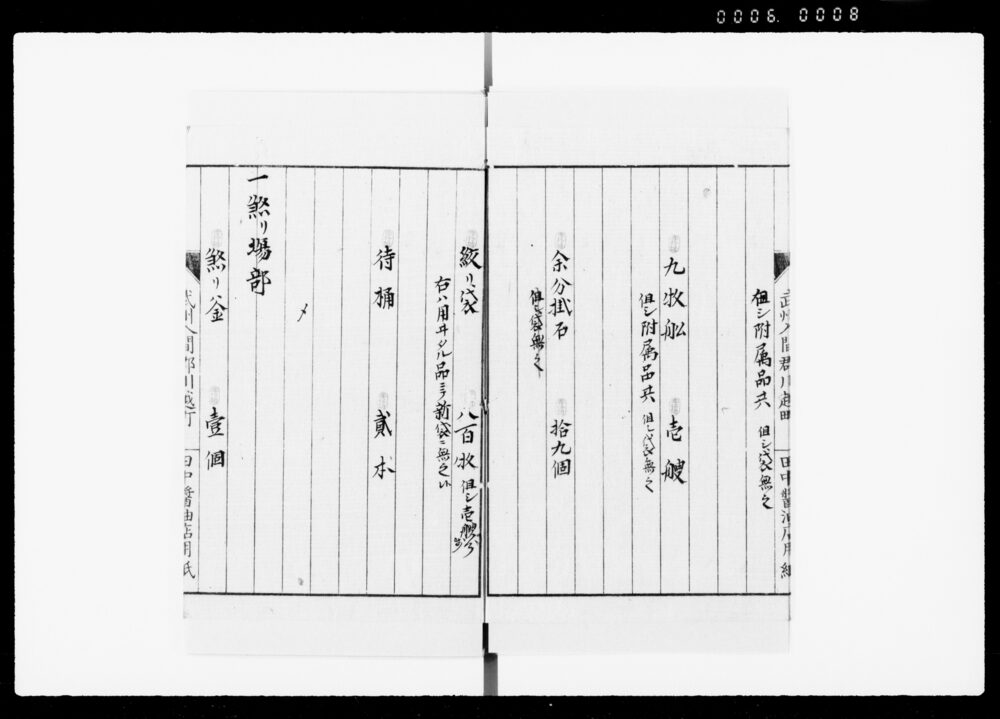 0006. 0008
武州入間郡川越町 田中醤油店用紙
但シ附属品共 但シ袋無之
九枚舩 壱艘
但シ附属品共 但シ袋無之
余分掛石 拾九個
但シ袋無之
絞リ袋 八百枚 但シ壱艘分
右ハ用ヰタル品ニテ新袋ニ無之候
待桶 貳本
〆
一煞リ場部
煞リ釜 壹個
武州入間郡川越町 田中醤油店用紙